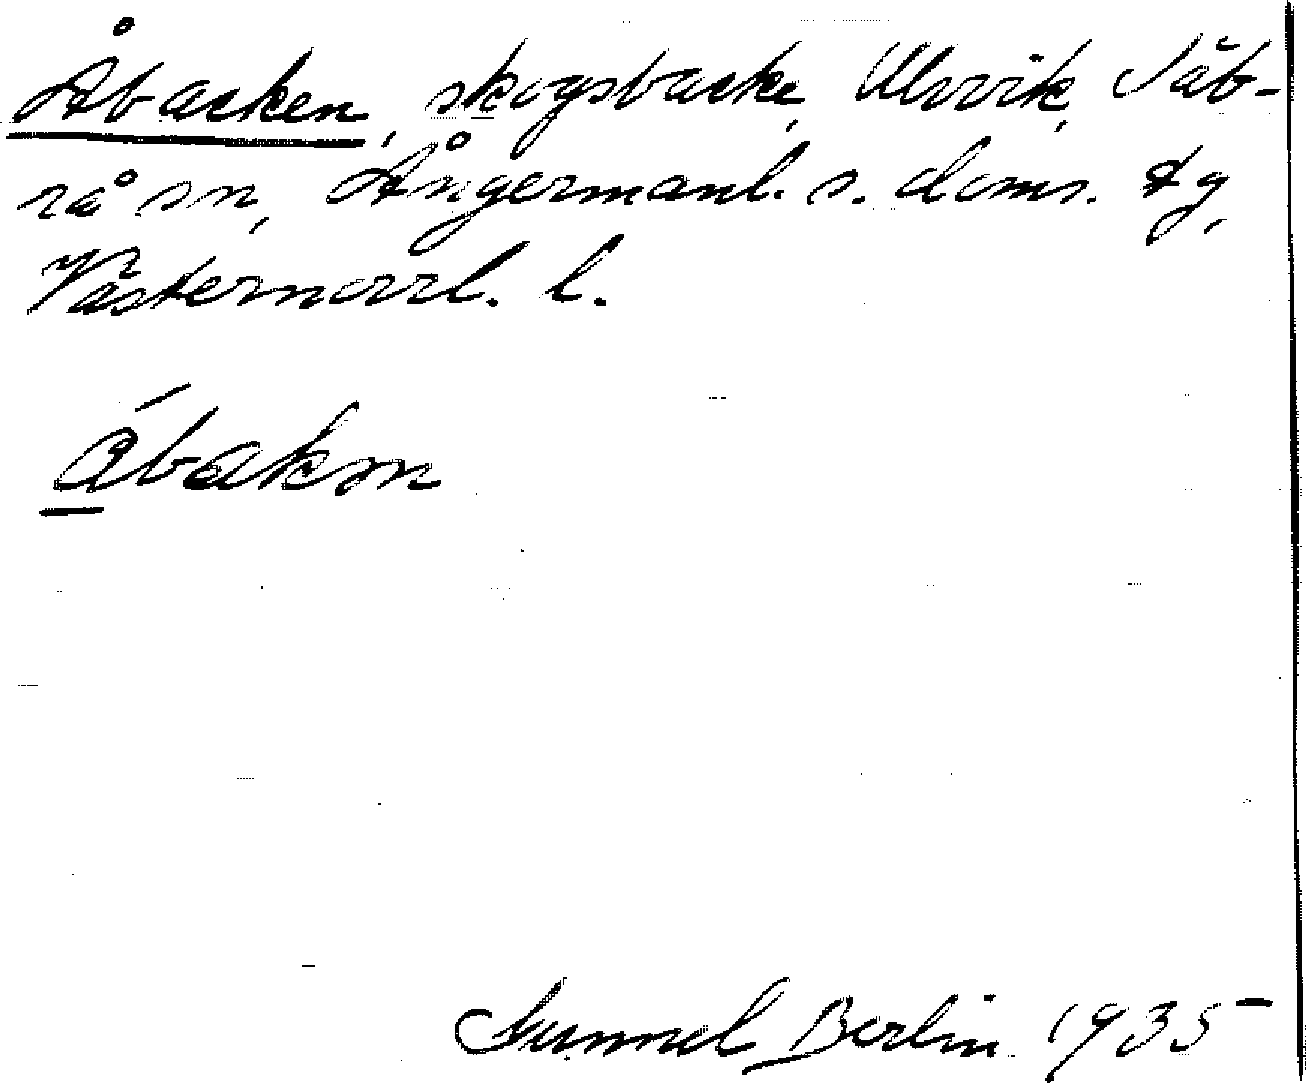 Åbacken, skogsbacke, Ulvvik, Säb-
rå sn, Ångermanl. s. doms. tg,
Västernorrl. l.
åbakm
Gunnel Berlin 1935